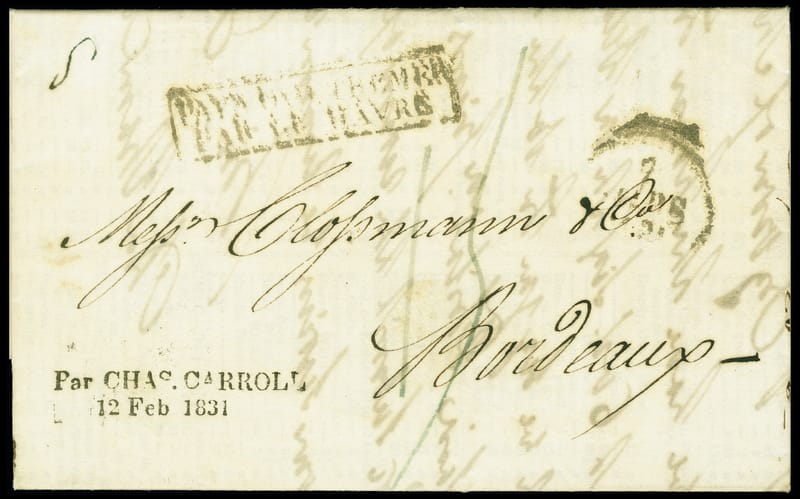 PAYS D'OUTREMER
PAR LE HAVRE
7
MARS
Messrs Clossmann & Co.
Bordeaux
Par CHAs. CARROLL
12 Feb 1831